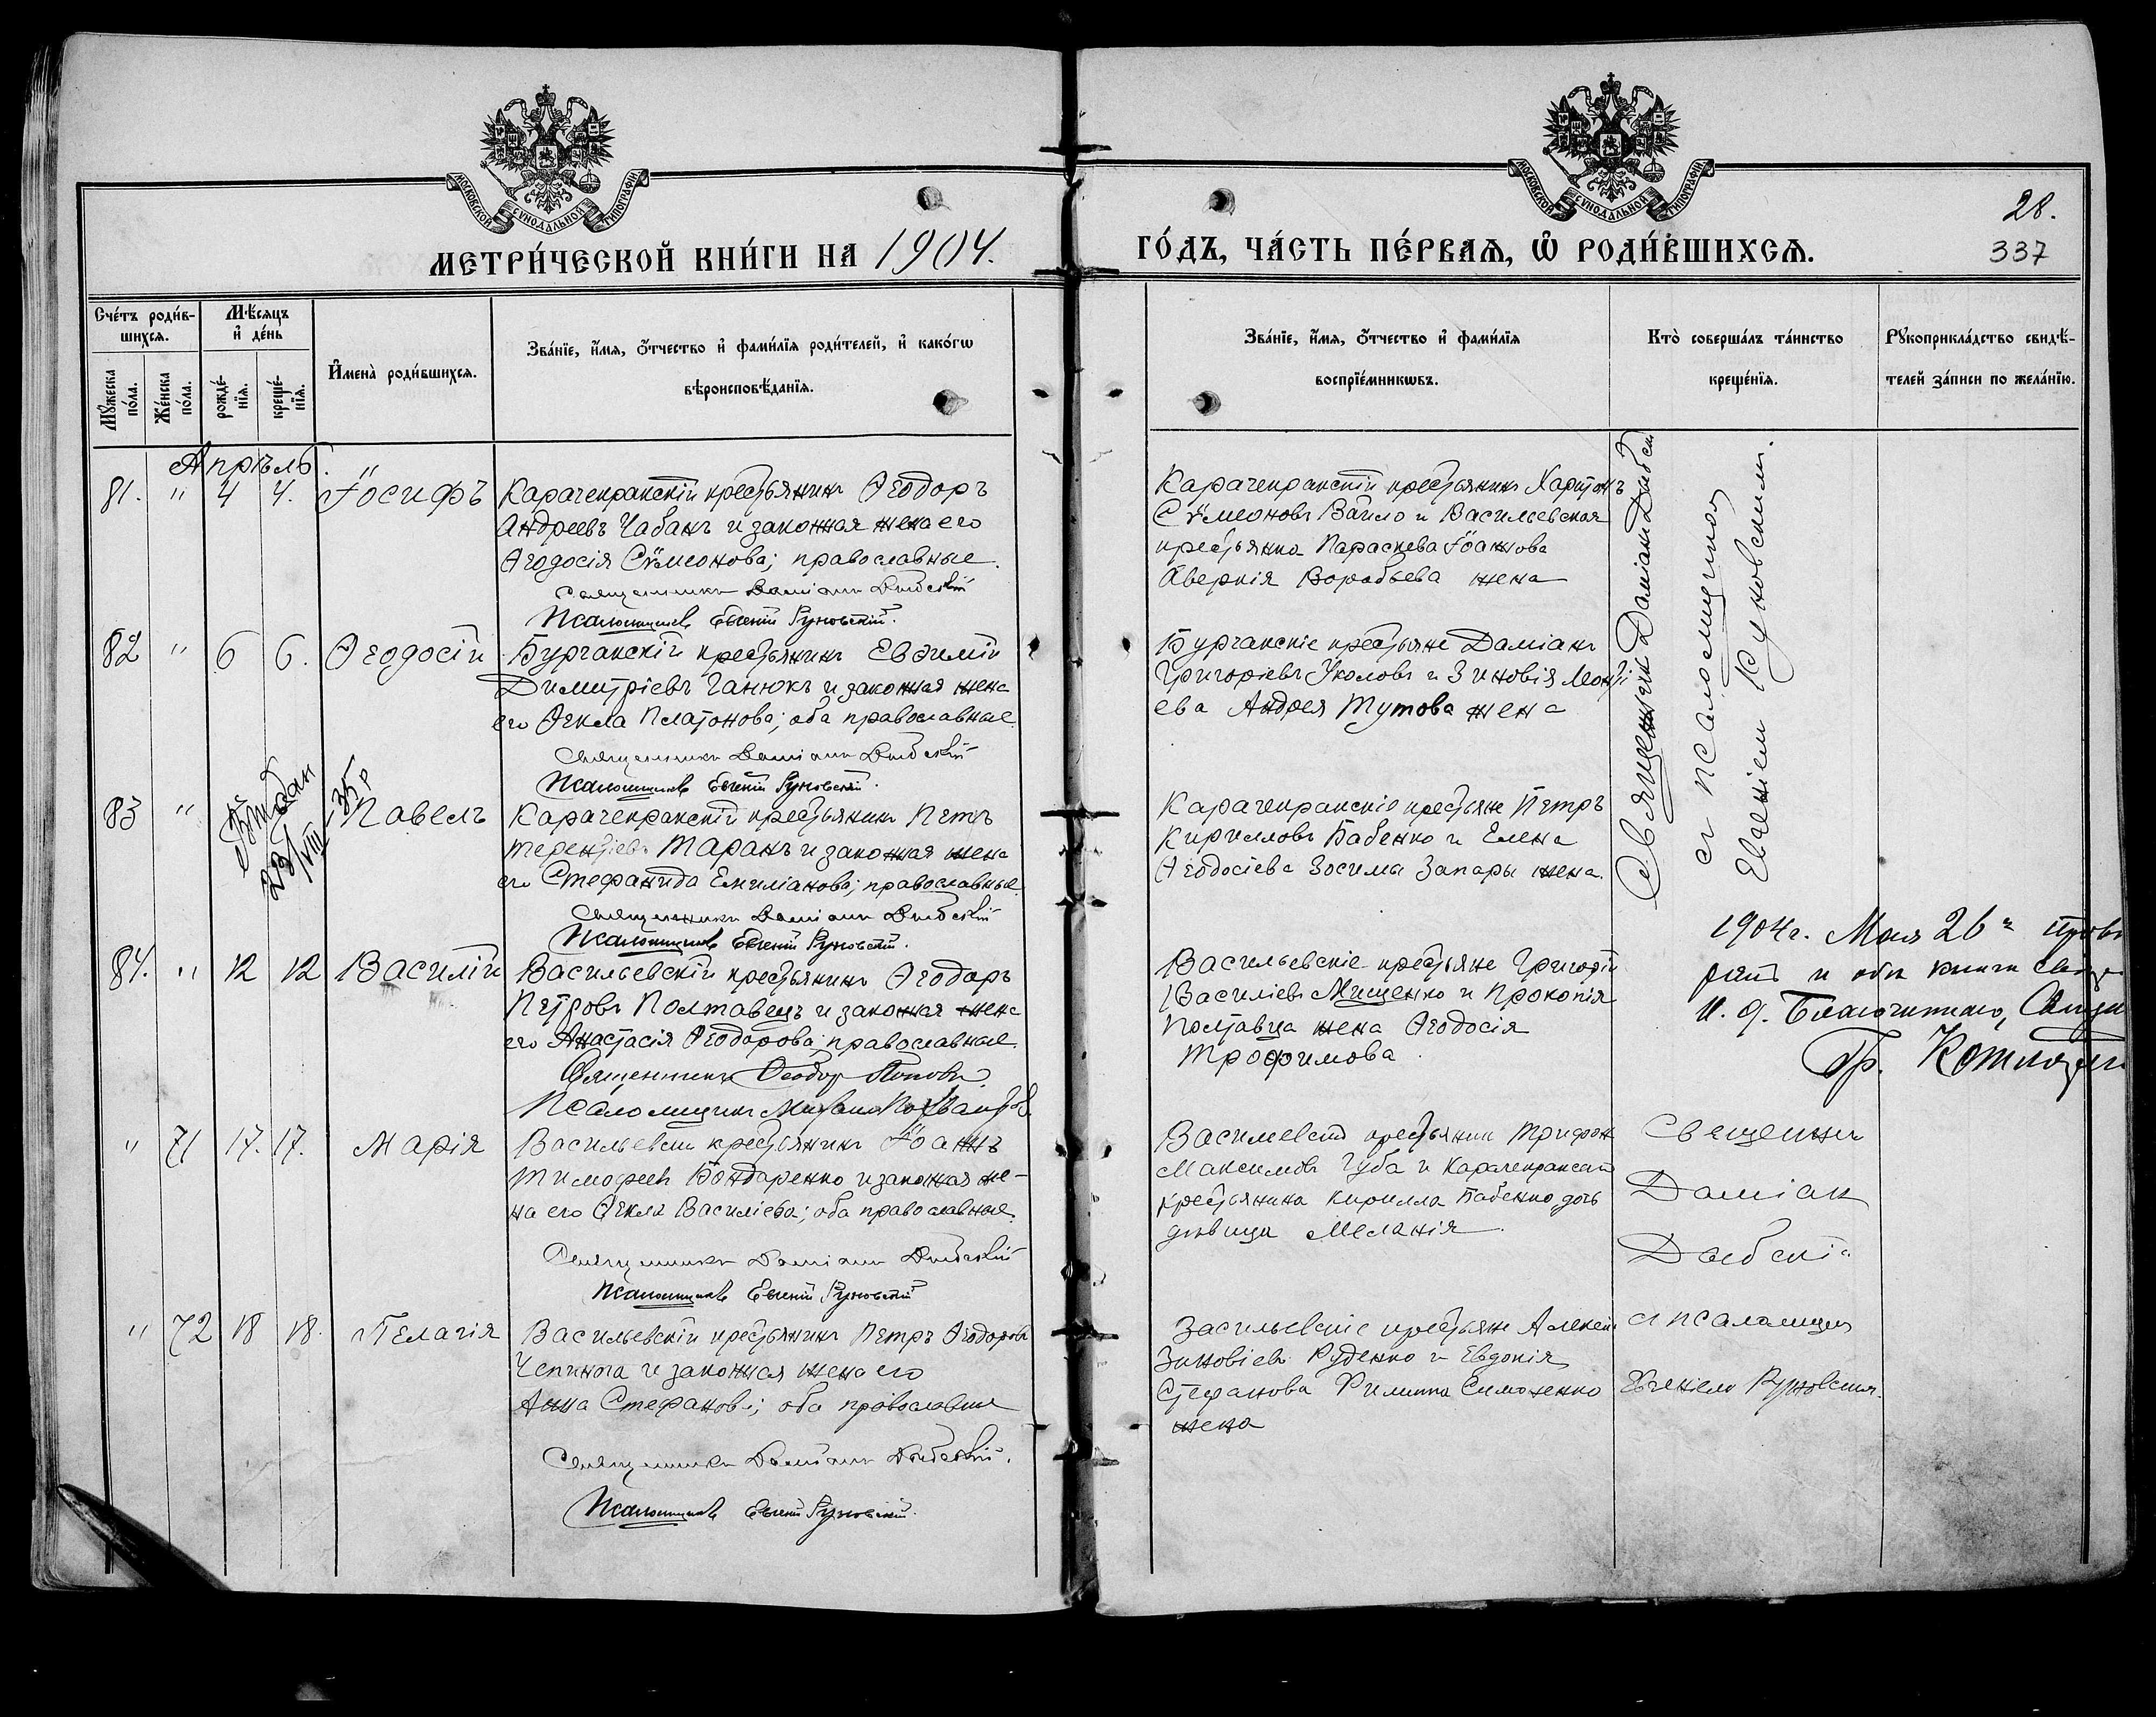 МОСКОВСКОЙ СУНОДАЛЬНОЙ ТИПОГРАФІИ
МОСКОВСКОЙ СУНОДАЛЬНОЙ ТИПОГРАФІИ
28.
337
МЕТРИ́ЧЕСКОЙ КНИ́ГИ НА 1904.
ГО́ДЪ, ЧА́СТЬ ПЕ́РВАѦ, Ѡ҆ РОДИ́ВШИХСѦ.
Сче́тъ роди́в-
шихсѧ.
Мѣ́сѧцъ
и҆ де́нь
Мꙋ́жеска по́ла.
Же́нска по́ла.
рожде́-
нїѧ.
креще́-
нїѧ.
И҆мена̀ роди́вшихсѧ.
Зва́нїе, и҆́мѧ, ѻ҆́тчество и҆ фами́лїѧ роди́телей, и҆ како́гѡ
вѣроисповѣ́данїѧ.
Зва́нїе, и҆́мѧ, ѻ҆́тчество и҆ фами́лїѧ
воспрїе́мникѡвъ.
Кто̀ соверша́лъ та́инство
креще́нїѧ.
Рꙋкоприкла́дство свидѣ́-
телей за́писи по жела́нїю.
Апрѣль.
81. " 4 4. Іосифъ
Карачекракскій крестьянинъ Ѳеодоръ
Андреевъ Чабанъ и законная жена его
Ѳеодосія Сѵмеонова; православные.
Священникъ Даміанъ Дыбскій
Псаломщикъ Евгеній Руновскій.
Карачекракскій крестьянинъ Харитонъ
Сѵмеоновъ Вайло и Васильевская
крестьянка Параскева Іоаннова
Аверкія Воробьева жена
82 " 6 6. Ѳеодосій
Бурчакскій крестьянинъ Евѳимій
Димитріевъ Ганюкъ и законная жена
его Ѳекла Платонова; оба православные
Священникъ Даміанъ Дыбскій
Псаломщикъ Евгеній Руновскій.
Бурчакскіе крестьяне Даміанъ
Григоріевъ Уколовъ и Зиновія
ева Андрея Тутова жена
83 " Павелъ
23/VIII-35р
Карачекракскій крестьянинъ Петръ
Терентіевъ Таранъ и законная жена
его Стефанида Емиліанова; православные
Священникъ Даміанъ Дыбскій
Псаломщикъ Евгеній Руновскій.
Карачекракскіе крестьяне Петръ
Кирилловъ Бабенко и Елена
Ѳеодосіева Зосимы Запары жена.
84. " 12 12 Василій
Васильевскій крестьянинъ Ѳеодоръ
Петровъ Полтавецъ и законная жена
его Анастасія Ѳеодорова; православные.
Священникъ Ѳеодоръ Поповъ.
Псаломщикъ
Васильевскіе крестьяне Григорій
Василіевъ Мищенко и Прокопія
Полтавца жена Ѳеодосія
Трофимова.
" 71 17. 17. Марія
Васильевскій крестьянинъ Іоаннъ
Тимофеевъ Бондаренко и законная же-
на его Ѳекла Василіева; оба православные.
Священникъ Даміанъ Дыбскій
Псаломщикъ Евгеній Руновскій
Васильевскій крестьянинъ Трифонъ
Максимовъ Губа и Карачекракскаго
крестьянина Кирилла Бабенко дочь
дѣвица Меланія.
" 72 18 18. Пелагія
Васильевскій крестьянинъ Петръ Ѳеодоровъ
Чепинога и законная жена его
Анна Стефанова; оба православные
Священникъ Даміанъ Дыбскій.
Псаломщикъ Евгеній Руновскій.
Васильевскіе крестьяне Алексѣй
Зиновіевъ Руденко и Евдокія
Стефанова Филиппа Симоненко
жена
Священникъ Даміанъ Дыбскій
съ псаломщикомъ
Евгеніемъ Руновскимъ.
1904 г. Мая 26
и. д. Благочиннаго,
Гр.
Священникъ
Даміанъ
Дыбскій
съ псаломщик
Евгеніемъ Руновскимъ.